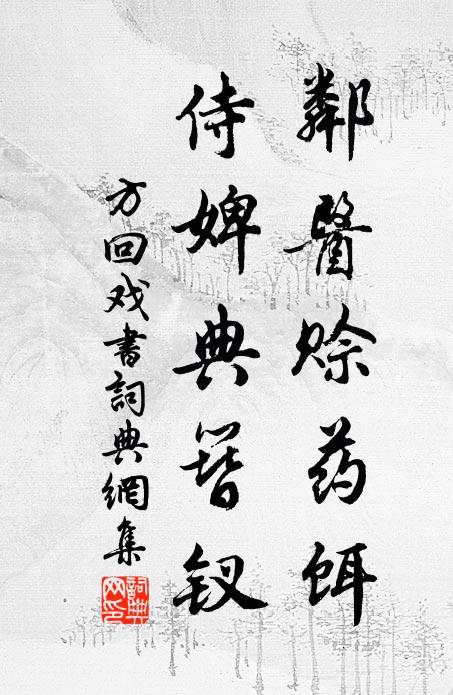 鄰醫赊药餌
侍婢典簪钗
方回戏書詞典網集